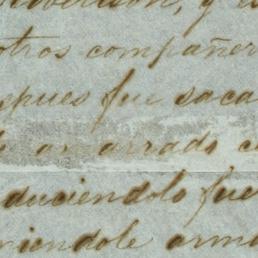 otros compañer
spues fue saca
amarrado c
duciendolo fue
niendole arma